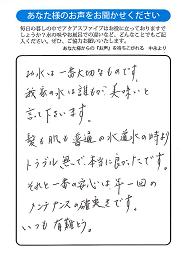 あなた様のお声をお聞かせください
毎日の暮しの中でアクアスファイアはお役に立っておりますで
しょうか？水の味やお風呂での違いなど、どんなことでもご記
入ください。ぜひ、ご協力お願いいたします。
あなた様からの「お声」を待ちこがれる 中島より
お水は一番大切なものです。
我家の水は誰もが美味いと
言って下さいます。
髪も肌も普通の水道水の時より
トラブル無しで本当に良かったです。
それと一番の安心は年一回の
メンテナンスの確実さです。
いつも有難とう。